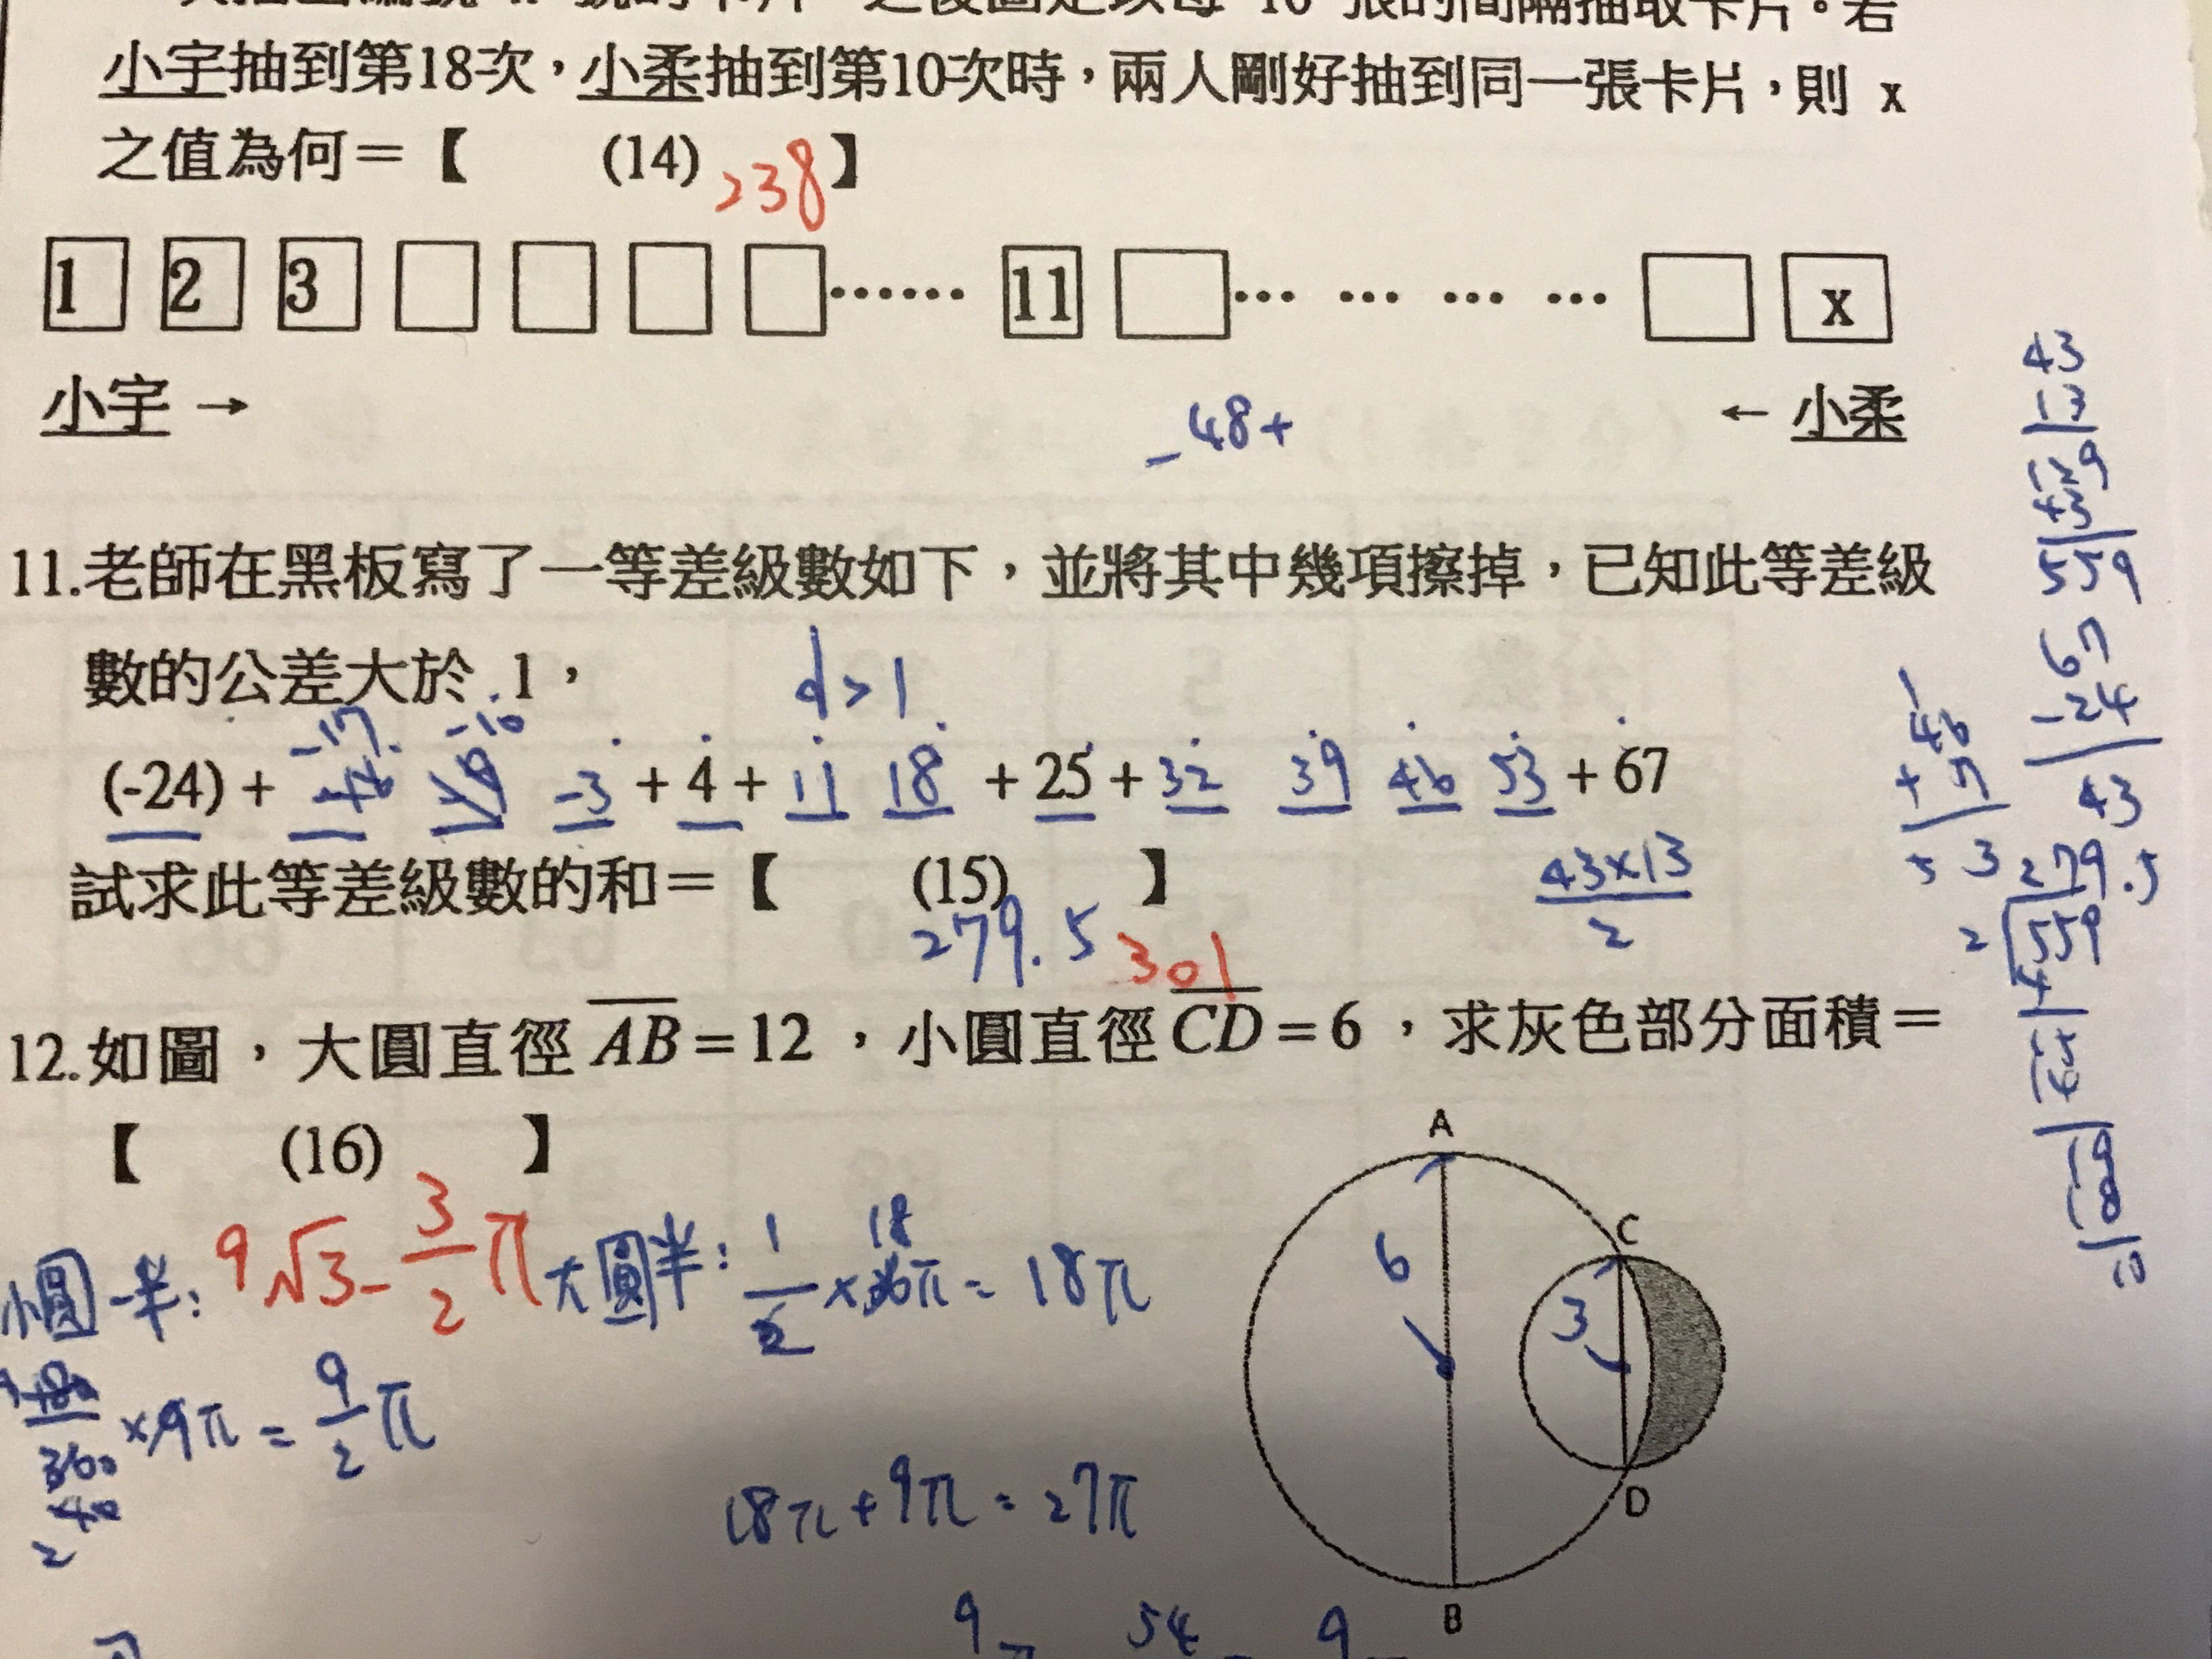 小宇抽到第18次，小柔抽到第10次時，兩人剛好抽到同一張卡片，則 x
之值為何＝【 (14) 238 】
1 2 3 …… 11 … … … … x
小宇 → ← 小柔
-48+
43
13
129
43
559
11.老師在黑板寫了一等差級數如下，並將其中幾項擦掉，已知此等差級
數的公差大於 1，
d>1
-17 -10
(-24)+ -3 +4+ 11 18 +25+ 32 39 46 53 +67
67
-24
43
46
+7
53
試求此等差級數的和＝【 (15) 】
279.5 301
43×13
2
279.5
2 559
4
15
14
19
18
10
12.如圖，大圓直徑 AB=12，小圓直徑 CD=6，求灰色部分面積＝
【 (16) 】
9√3-3/2π
小圓一半：
大圓半：1/2×36π=18π
18
180/360×9π=9/2π
18π+9π=27π
A
C
6
3
D
B
9
54
9